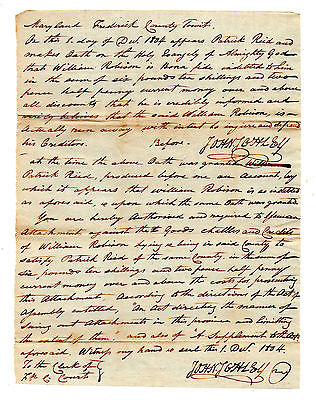 Maryland Frederick County Towit.
On the 1 day of Decr. 1804 appears Patrick Reid and
makes Oath on the Holy Evangely of Almighty God
that William Robison is Bona fide indebted to him
in the sum of six pounds ten shillings and two
pence half penny current money over and above
all discounts that he is credibly informed and
verily believes that the said William Robison is
actually run away with intent to injure and defraud
his Creditors. Before JOHN COHLEY
at the time the above Oath was granted
Patrick Ried, produced before me an Account, by
which it appears that William Robison is so indebted
as afores said, is upon which the same Oath was granted
You are hereby Authorised and required to Issue an
Attachment against the Goods chattles and Credits
of William Robison lying & being in said County to
satisfy Patrick Reid of the same County, in the sum of
six pounds ten shillings and two pence half penny
current money over and above the costs for prosecuting
this Attachment, According to the directions of the Act of
Assembly entitled, "An Act directing the manner of
Suing out Attachments in this province and limiting
the extent of them" and also of "A Supplement to the Act
aforesaid. Witness my hand & seal the 1. Decr. 1804.
To the Clerk of JOHN COHLEY
Fk. C. Court